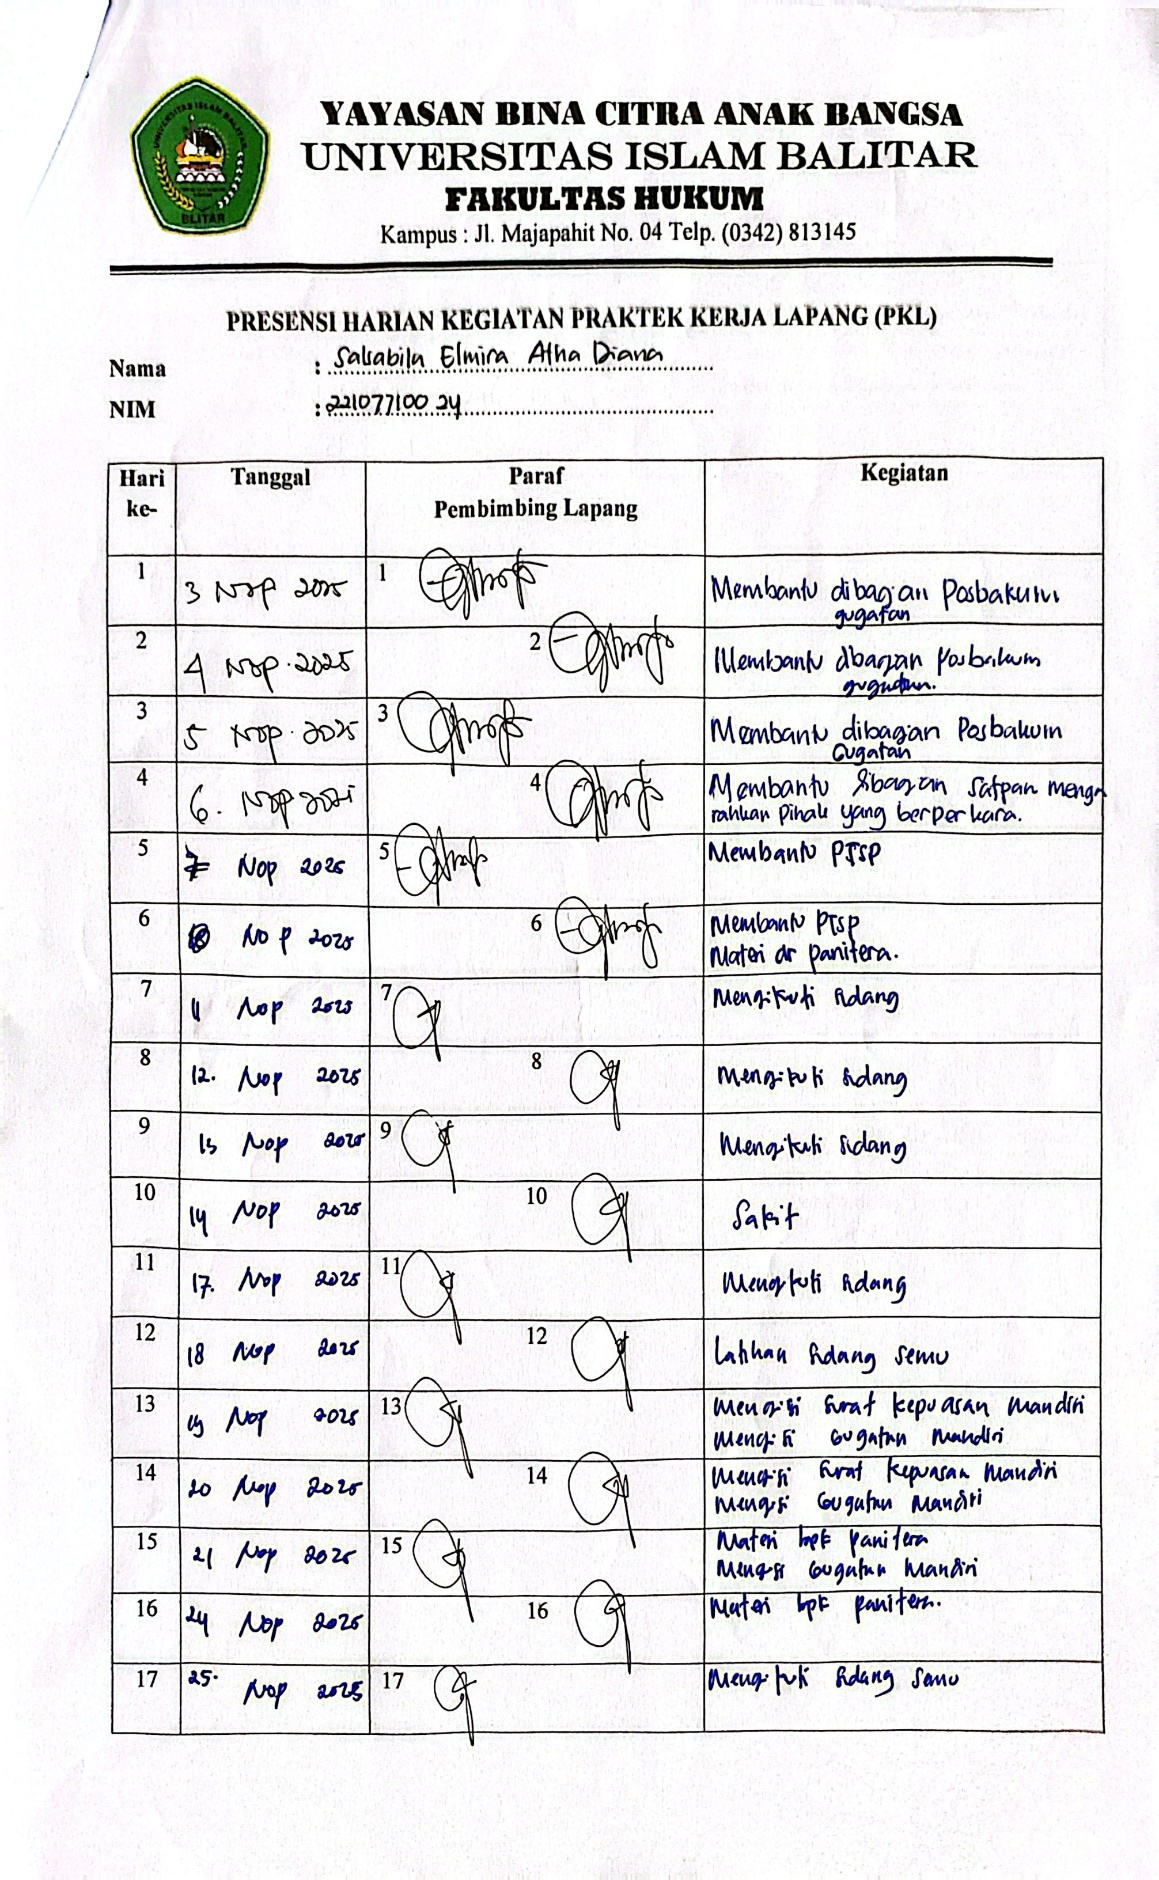 UNIVERSITAS ISLAM BALITAR
BLITAR
YAYASAN BINA CITRA ANAK BANGSA
UNIVERSITAS ISLAM BALITAR
FAKULTAS HUKUM
Kampus : Jl. Majapahit No. 04 Telp. (0342) 813145
PRESENSI HARIAN KEGIATAN PRAKTEK KERJA LAPANG (PKL)
Nama : Salsabila Elmira Atha Diana
NIM : 221077100 24
Hari ke- Tanggal Paraf Pembimbing Lapang Kegiatan
1 3 Nop 2025 1 Membantu dibagian Posbakum
gugatan
2 4 Nop. 2025 2 Membantu dbagian Posbakum
gugatan.
3 5 Nop. 2025 3 Membantu dibagian Posbakum
Gugatan
4 6. Nop 2025 4 Membantu dibagian Satpan menga
rahkan Pihak yang berperkara.
5 7 Nop 2025 5 Membantu PTSP
6 Nop 2025 6 Membantu PTSP
Materi dr panitera.
7 11 Nop 2025 7 Mengikuti sidang
8 12. Nop 2025 8 Mengikuti sidang
9 13 Nop 2025 9 Mengikuti sidang
10 14 Nop 2025 10 Sakit
11 17. Nop 2025 11 Mengikuti sidang
12 18 Nop 2025 12 Latihan sidang semu
13 19 Nop 2025 13 Mengisi surat kepuasan Mandiri
Mengisi Gugatan Mandiri
14 20 Nop 2025 14 Mengisi surat kepuasan Mandiri
Mengisi Gugatan Mandiri
15 21 Nop 2025 15 Materi bpk panitera
Mengisi Gugatan Mandiri
16 24 Nop 2025 16 Materi bpk panitera.
17 25. Nop 2025 17 Mengikuti sidang semu